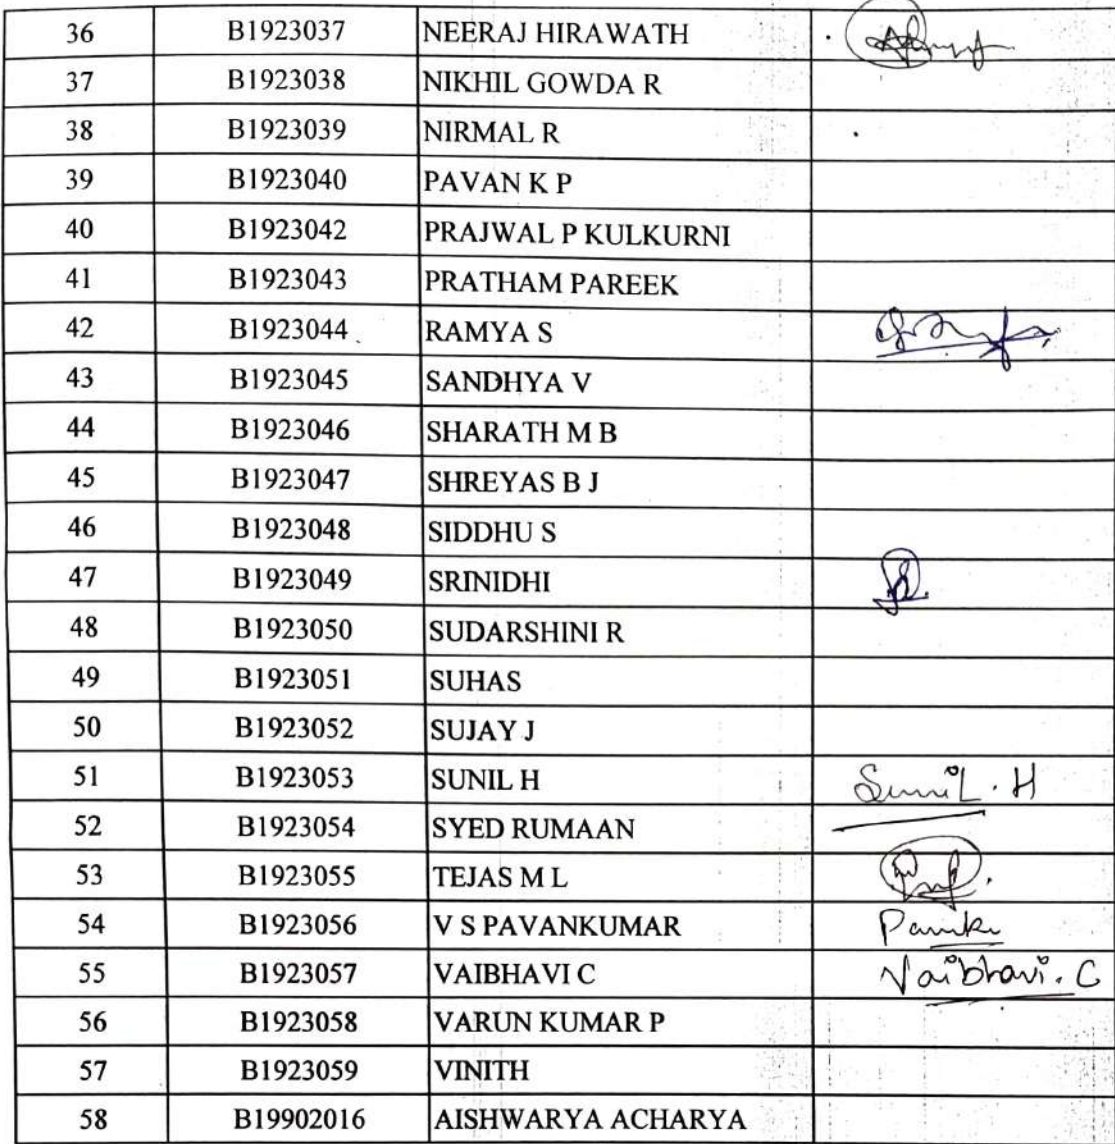 36 B1923037 NEERAJ HIRAWATH
37 B1923038 NIKHIL GOWDA R
38 B1923039 NIRMAL R
39 B1923040 PAVAN K P
40 B1923042 PRAJWAL P KULKURNI
41 B1923043 PRATHAM PAREEK
42 B1923044 RAMYA S
43 B1923045 SANDHYA V
44 B1923046 SHARATH M B
45 B1923047 SHREYAS B J
46 B1923048 SIDDHU S
47 B1923049 SRINIDHI
48 B1923050 SUDARSHINI R
49 B1923051 SUHAS
50 B1923052 SUJAY J
51 B1923053 SUNIL H SuniL. H
52 B1923054 SYED RUMAAN
53 B1923055 TEJAS M L
54 B1923056 V S PAVANKUMAR
55 B1923057 VAIBHAVI C Vaibhavi. C
56 B1923058 VARUN KUMAR P
57 B1923059 VINITH
58 B19902016 AISHWARYA ACHARYA